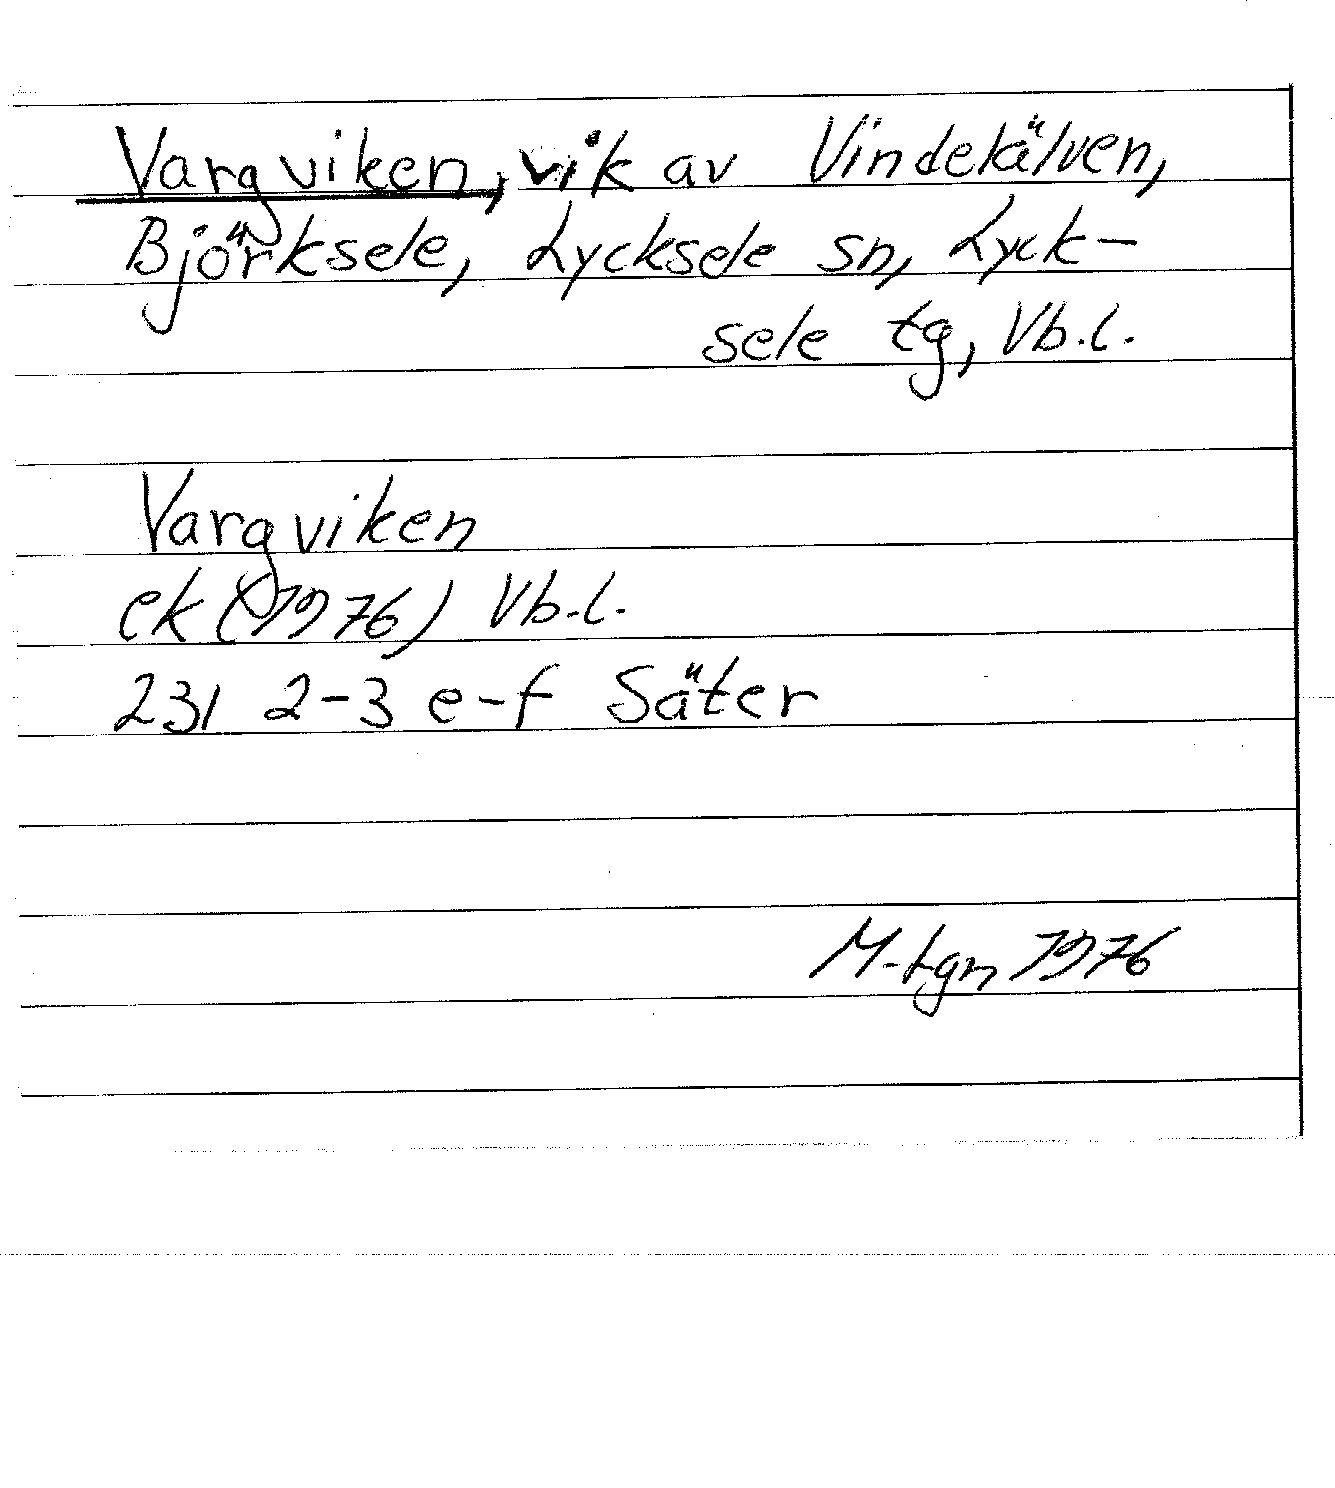 Vargviken, vik av Vindelälven,
Björksele, Lycksele sn, Lyck-
sele tg, Vb.l.
Vargviken
ek (1976) Vb.l.
231 2-3 e-f Säter
M-tgn 1976